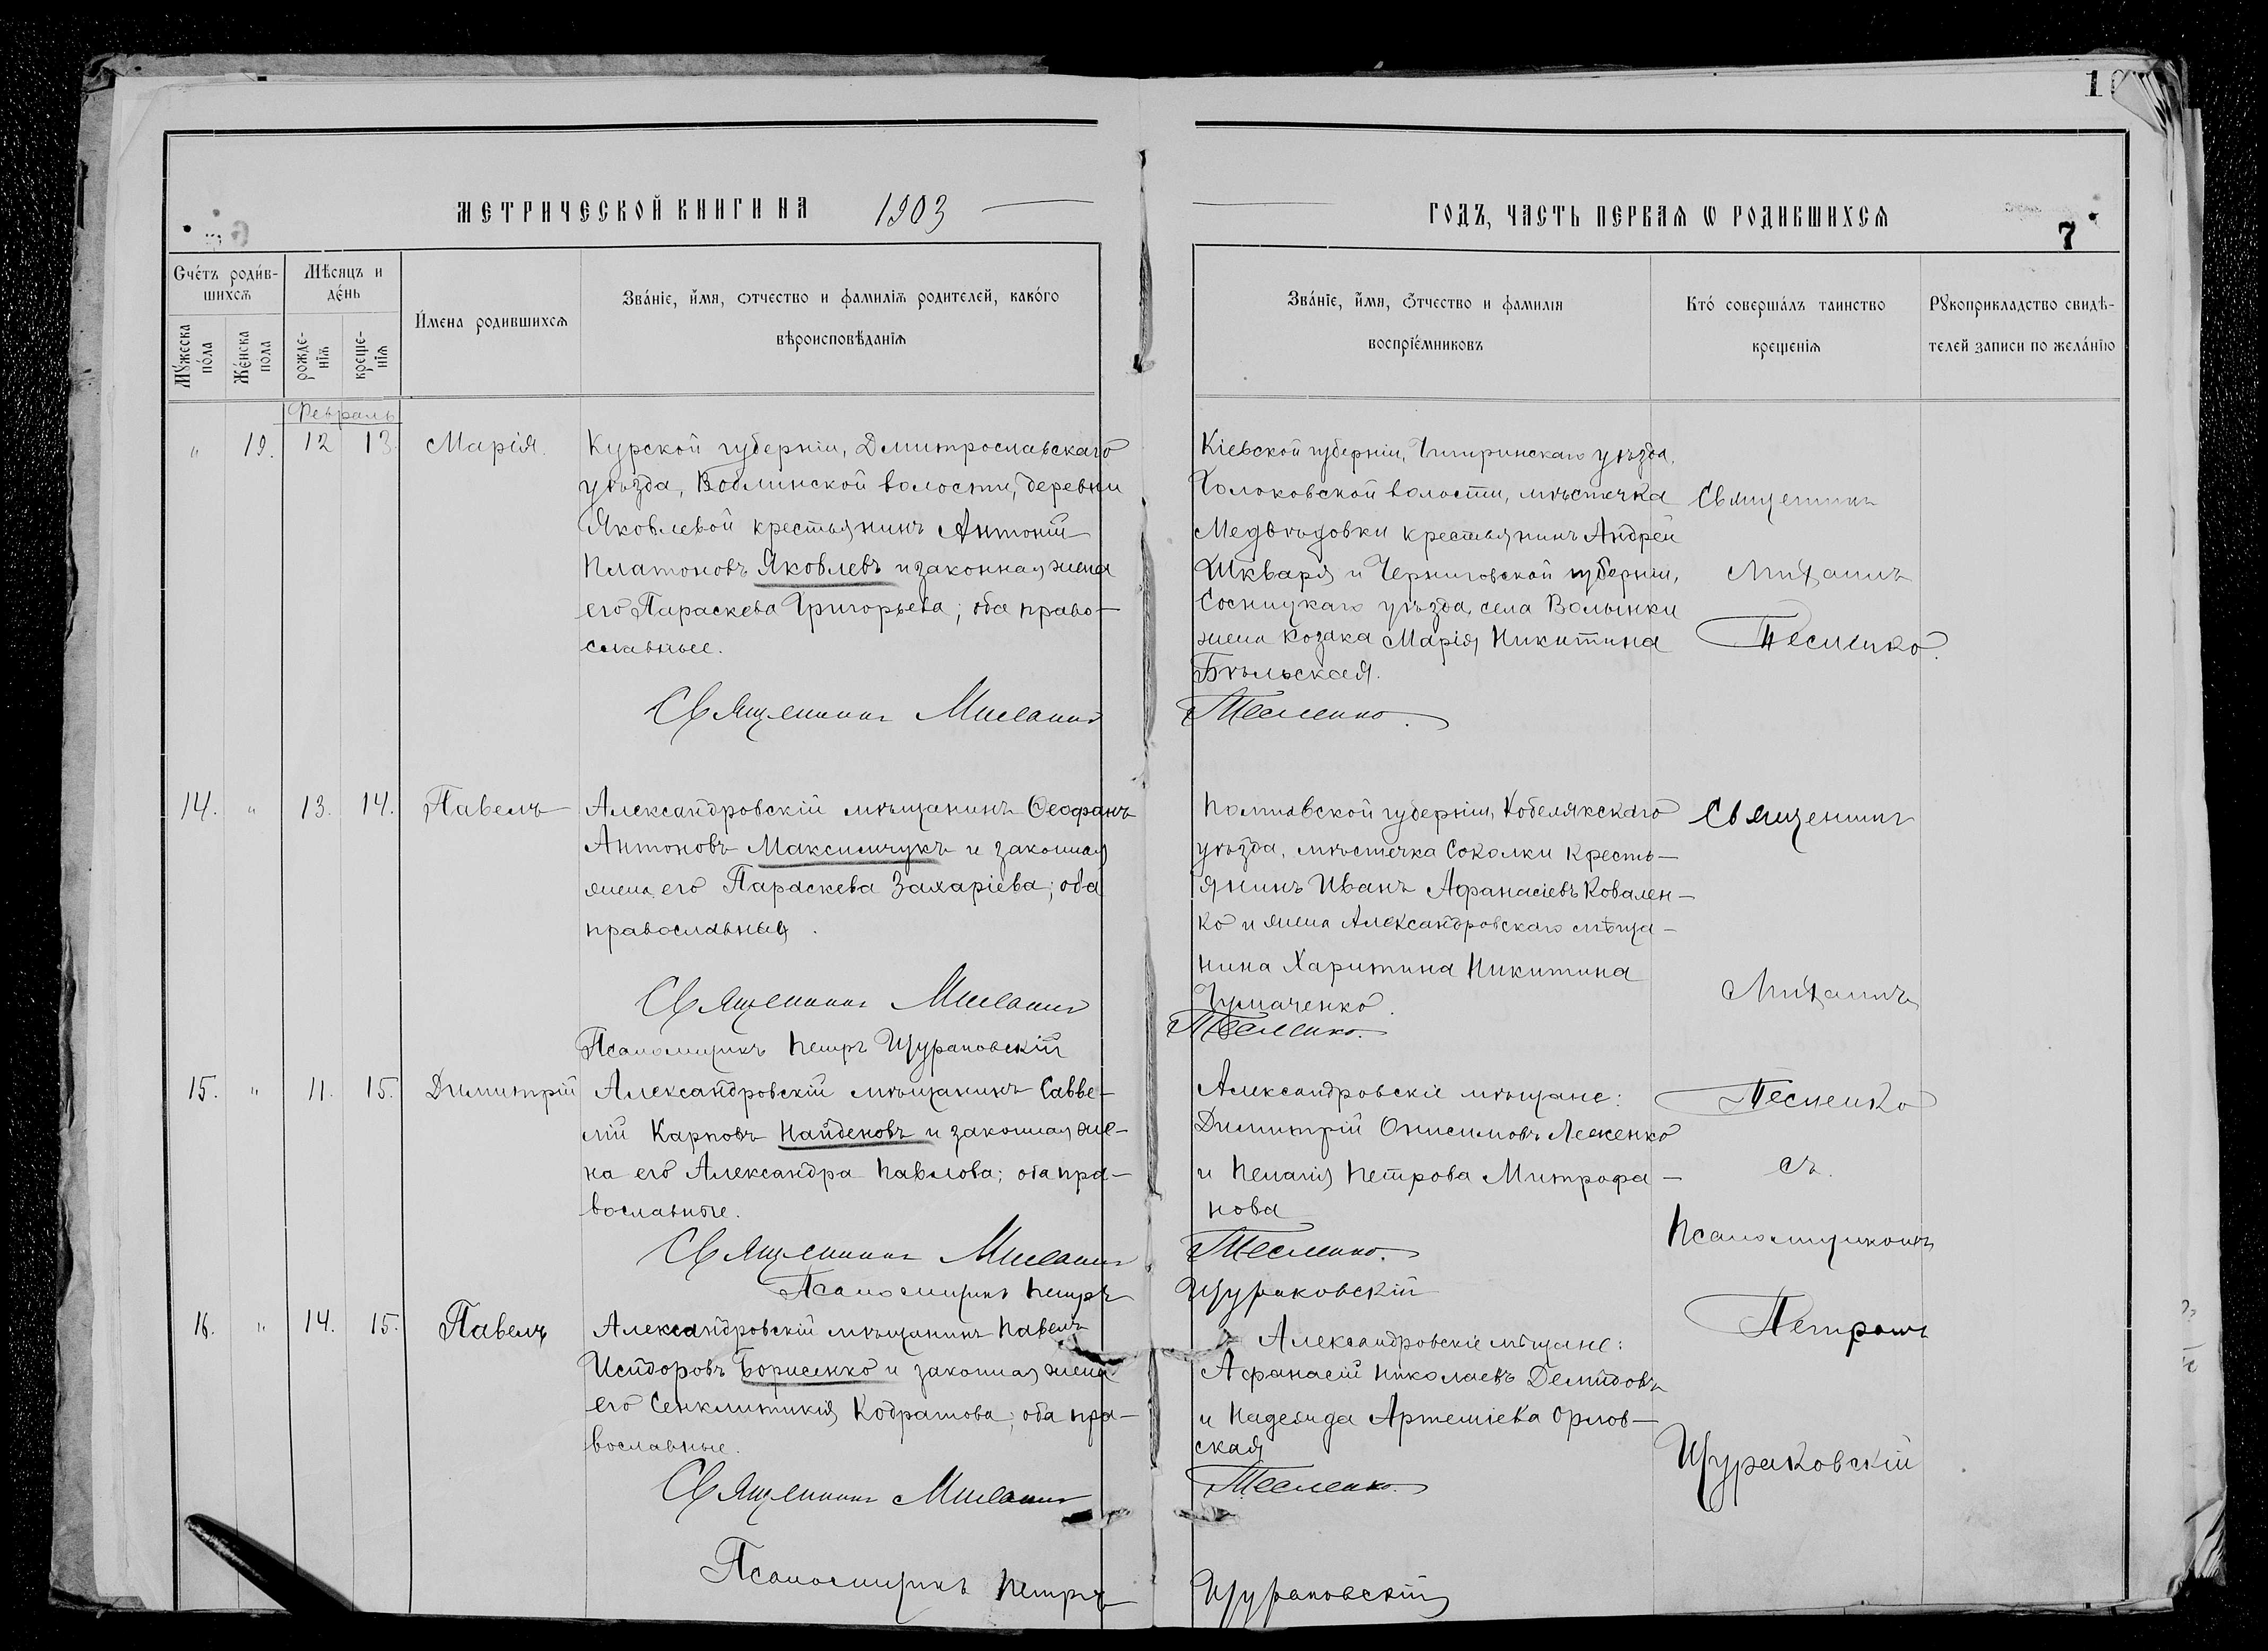 10
МЕТРИЧЕСКОЙ КНИГИ НА 1903
ГОДЪ, ЧАСТЬ ПЕРВАЯ Ѡ РОДИВШИХСЯ
7
Счéтъ роди́в-
шихсѧ
Мѣ́сѧцъ и
де́нь
И́мена родившихсѧ
Зва́нїе, и́мѧ, ѻтчество и фамилїѧ родителей, како́гѡ
вѣроисповѣданїѧ
Мꙋ́жеска
по́ла
Же́нска
пола
рожде-
нїѧ
креще-
нїѧ
Зва́нїе, и́мѧ, ѻ́тчество и фамилїѧ
воспрїе́мниковъ
Кто́ соверша́лъ таинство
крещенїѧ
Рꙋкоприкладство свидѣ-
телей записи по жела́нїю
Февраль
" 19. 12 13. Марія.
Курской губерніи, Дмитрославскаго
уѣзда, Воблинской волости, деревни
Яковлевой крестьянинъ Антоній
Платоновъ Яковлевъ и законная жена
его Параскева Григорьева; оба право-
славные.
Священникъ Михаилъ Тесленко.
Кіевской губерніи, Чигиринскаго уѣзда,
волости, мѣстечка
Медвѣдовки крестьянинъ Андрей
Шкваря и Черниговской губерніи,
Сосницкаго уѣзда, села Волынки
жена козака Марія Никитина
Бѣльская.
Священникъ
Михаилъ
Тесленко.
14. " 13. 14. Павелъ
Александровскій мѣщанинъ Ѳеофанъ
Антоновъ Максимчукъ и законная
жена его Параскева Захаріева; оба
православные.
Священникъ Михаилъ Тесленко.
Псаломщикъ Петръ Щураковскій
Полтавской губерніи, Кобелякскаго
уѣзда, мѣстечка Соколки кресть-
янинъ Иванъ Афанасіевъ Ковален-
ко и жена Александровскаго мѣща-
нина Харитина Никитина
Чумаченко.
Священникъ
Михаилъ
15. " 11. 15. Димитрій
Александровскій мѣщанинъ Савве-
лій Карповъ Найденовъ и законная же-
на его Александра Павлова; оба пра-
вославные.
Священникъ Михаилъ Тесленко.
Псаломщикъ Петръ Щураковскій
Александровскіе мѣщане:
Димитрій Онисимовъ Леженко
и Пелагія Петрова Митрофа-
нова
Тесленко
съ
Псаломщикомъ
16. " 14. 15. Павелъ
Александровскій мѣщанинъ Павелъ
Исидоровъ Борисенко и законная жена
его Сенклитикія Кодратова; оба пра-
вославные.
Священникъ Михаилъ Тесленко.
Псаломщикъ Петръ Щураковскій
Александровскіе мѣщане:
Афанасій Николаевъ Демидовъ
и Надежда Артеміева Орлов-
ская
Петромъ
Щураковскій